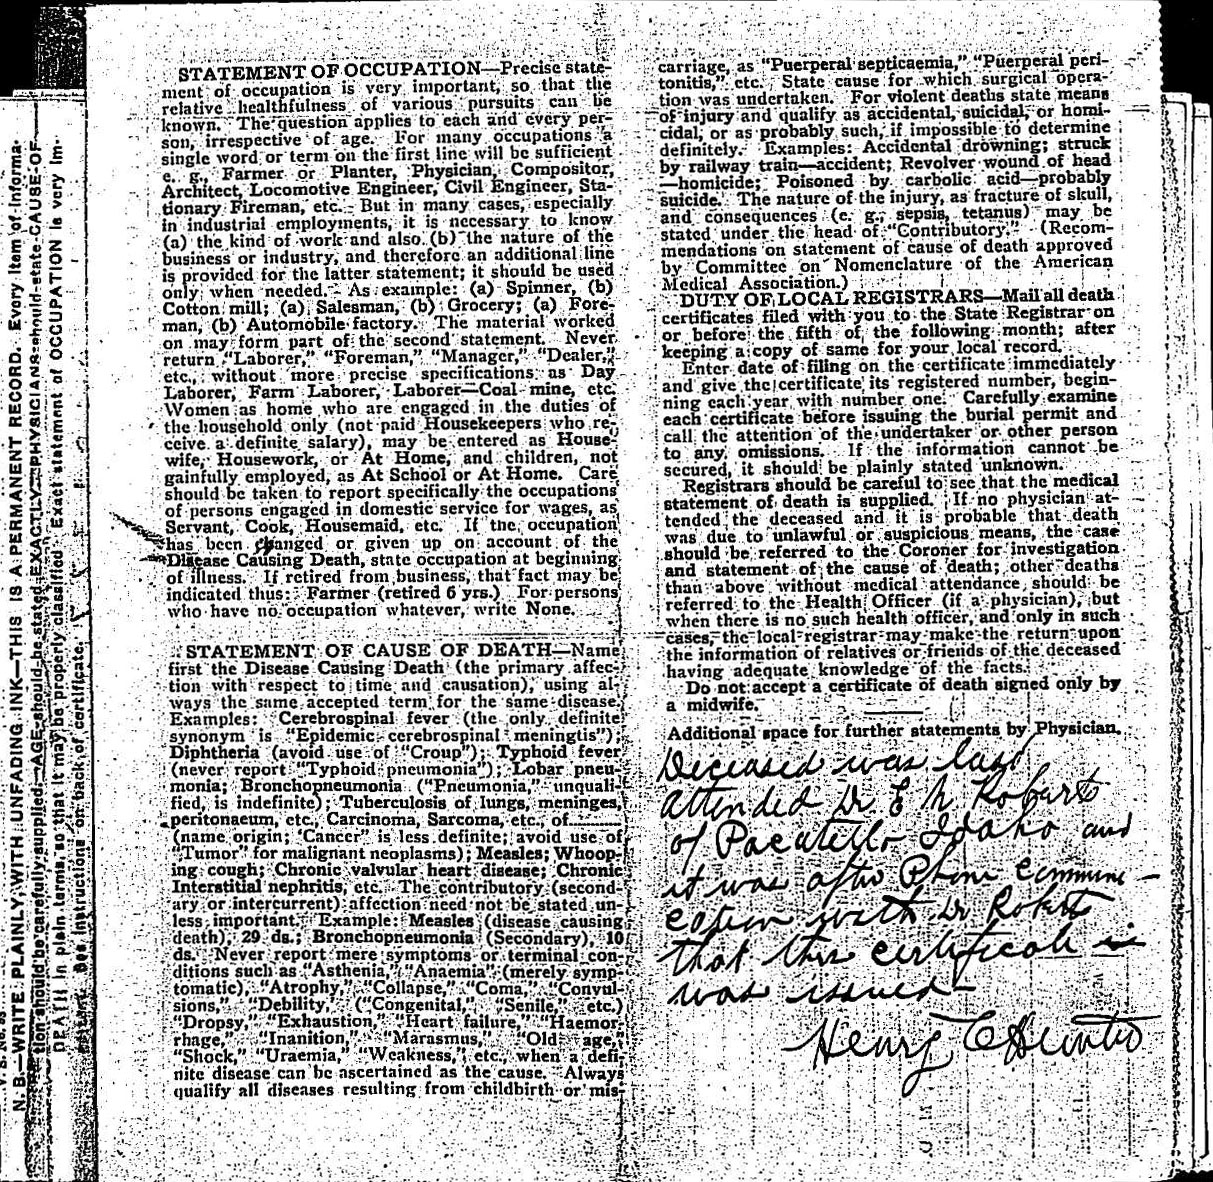 STATEMENT OF OCCUPATION—Precise state-
ment of occupation is very important, so that the
relative healthfulness of various pursuits can be
known. The question applies to each and every per-
son, irrespective of age. For many occupations a
single word or term on the first line will be sufficient
e. g., Farmer or Planter, Physician, Compositor,
Architect, Locomotive Engineer, Civil Engineer, Sta-
tionary Fireman, etc. But in many cases, especially
in industrial employments, it is necessary to know
(a) the kind of work and also (b) the nature of the
business or industry, and therefore an additional line
is provided for the latter statement; it should be used
only when needed. As example: (a) Spinner, (b)
Cotton mill; (a) Salesman, (b) Grocery; (a) Fore-
man, (b) Automobile factory. The material worked
on may form part of the second statement. Never
return "Laborer," "Foreman," "Manager," "Dealer,"
etc., without more precise specifications as Day
Laborer, Farm Laborer, Laborer—Coal mine, etc.
Women as home who are engaged in the duties of
the household only (not paid Housekeepers who re-
ceive a definite salary), may be entered as House-
wife, Housework, or At Home, and children, not
gainfully employed, as At School or At Home. Care
should be taken to report specifically the occupations
of persons engaged in domestic service for wages, as
Servant, Cook, Housemaid, etc. If the occupation
has been changed or given up on account of the
Disease Causing Death, state occupation at beginning
of illness. If retired from business, that fact may be
indicated thus: Farmer (retired 6 yrs.) For persons
who have no occupation whatever, write None.
STATEMENT OF CAUSE OF DEATH—Name
first the Disease Causing Death (the primary affec-
tion with respect to time and causation), using al-
ways the same accepted term for the same disease.
Examples: Cerebrospinal fever (the only definite
synonym is "Epidemic cerebrospinal meningtis");
Diphtheria (avoid use of "Croup"); Typhoid fever
(never report "Typhoid pneumonia"); Lobar pneu-
monia; Bronchopneumonia ("Pneumonia," unquali-
fied, is indefinite); Tuberculosis of lungs, meninges,
peritonaeum, etc., Carcinoma, Sarcoma, etc., of
(name origin; "Cancer" is less definite; avoid use of
"Tumor" for malignant neoplasms); Measles; Whoop-
ing cough; Chronic valvular heart disease; Chronic
Interstitial nephritis, etc. The contributory (second-
ary or intercurrent) affection need not be stated un-
less important. Example: Measles (disease causing
death), 29 ds.; Bronchopneumonia (Secondary), 10
ds. Never report mere symptoms or terminal con-
ditions such as "Asthenia," "Anaemia" (merely symp-
tomatic), "Atrophy," "Collapse," "Coma," "Convul-
sions," "Debility," ("Congenital," "Senile," etc.)
"Dropsy," "Exhaustion," "Heart failure," "Haemor-
rhage," "Inanition," "Marasmus," "Old age,"
"Shock," "Uraemia," "Weakness," etc., when a defi-
nite disease can be ascertained as the cause. Always
qualify all diseases resulting from childbirth or mis-
carriage, as "Puerperal septicaemia," "Puerperal peri-
tonitis," etc. State cause for which surgical opera-
tion was undertaken. For violent deaths state means
of injury and qualify as accidental, suicidal, or homi-
cidal, or as probably such, if impossible to determine
definitely. Examples: Accidental drowning; struck
by railway train—accident; Revolver wound of head
—homicide; Poisoned by carbolic acid—probably
suicide. The nature of the injury, as fracture of skull,
and consequences (e. g., sepsis, tetanus) may be
stated under the head of "Contributory." (Recom-
mendations on statement of cause of death approved
by Committee on Nomenclature of the American
Medical Association.)
DUTY OF LOCAL REGISTRARS—Mail all death
certificates filed with you to the State Registrar on
or before the fifth of the following month; after
keeping a copy of same for your local record.
Enter date of filing on the certificate immediately
and give the certificate its registered number, begin-
ning each year with number one. Carefully examine
each certificate before issuing the burial permit and
call the attention of the undertaker or other person
to any omissions. If the information cannot be
secured, it should be plainly stated unknown.
Registrars should be careful to see that the medical
statement of death is supplied. If no physician at-
tended the deceased and it is probable that death
was due to unlawful or suspicious means, the case
should be referred to the Coroner for investigation
and statement of the cause of death; other deaths
than above without medical attendance should be
referred to the Health Officer (if a physician), but
when there is no such health officer, and only in such
cases, the local registrar may make the return upon
the information of relatives or friends of the deceased
having adequate knowledge of the facts.
Do not accept a certificate of death signed only by
a midwife.
Additional space for further statements by Physician.
Deceased was last
attended Dr E N Roberts
of Pocatello Idaho and
it was after Phone Commini-
cation with Dr Roberts
that this certificate is
was issued-
Henry
N. B.—WRITE PLAINLY WITH UNFADING INK—THIS IS A PERMANENT RECORD. Every item of informa-
tion should be carefully supplied. AGE should be stated EXACTLY. PHYSICIANS should state CAUSE OF
DEATH in plain terms, so that it may be properly classified. Exact statement of OCCUPATION is very im-
portant. See instructions on back of certificate.